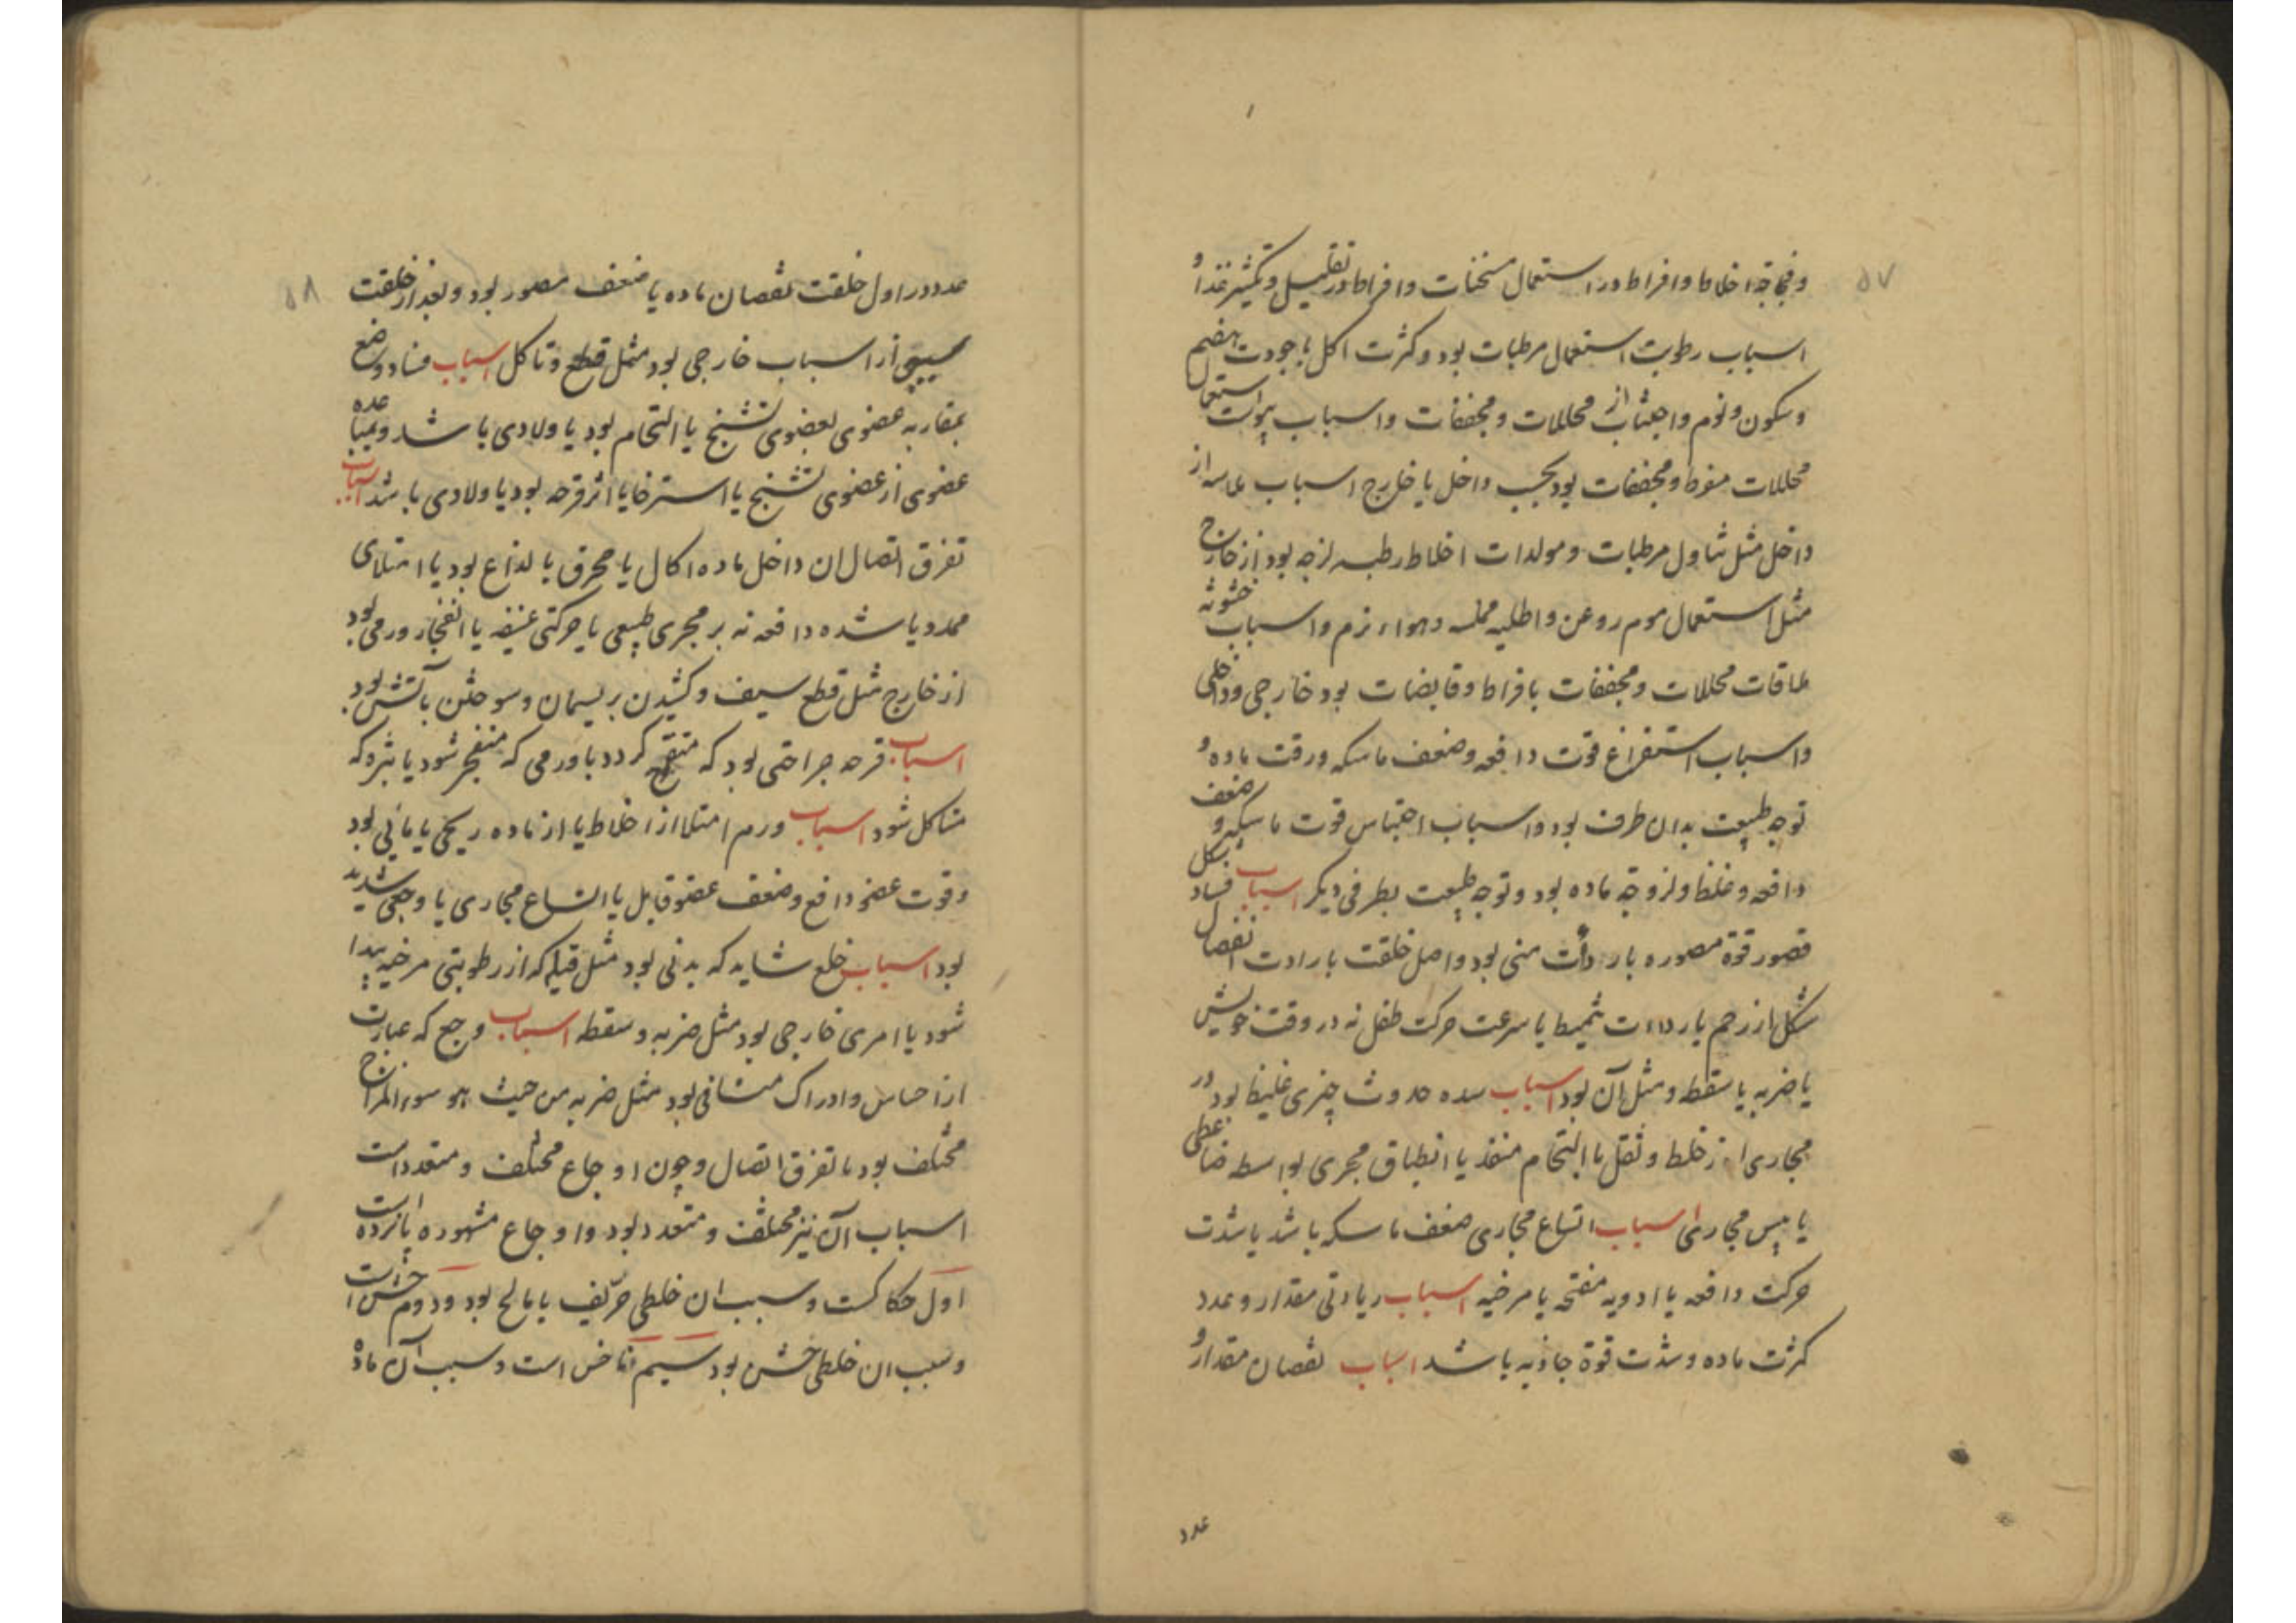 ۵۷
و فجاجة اخلاط و افراط در استعمال مسخنات و افراط در تقلیل و تکثیر غذا و
اسباب رطوبت استعمال مرطبات بود و کثرت اکل با جودت هضم
و سکون و نوم و اجتناب از محللات و مجففات و اسباب یبوست استعمال
محللات مفرط و مجففات بود بحسب داخل یا خارج اسباب ملاسه از
داخل مثل تناول مرطبات و مولدات اخلاط رطبه لزجه بود از خارج
مثل استعمال موم روغن و اطلیه مملسه و هواء نرم و اسباب خشونة
ملاقات محللات و مجففات بافراط و قابضات بود خارجی و داخلی
و اسباب استفراغ قوت دافعه و ضعف ماسکه و رقت ماده و
توجه طبیعت بدان طرف بود و اسباب احتباس قوت ماسکه و ضعف
دافعه و غلظ و لزوجة ماده بود و توجه طبیعت بطرفی دیگر اسباب فساد شکل
قصور قوة مصوره یا ردأت منی بود و اصل خلقت یا ردات انفصال
شکل از رحم یا رداءت تقمیط یا سرعت حرکت طفل نه در وقت خویش
یا ضربه یا سقطه و مثل آن بود اسباب سده حدوث چیزی غلیظ بود در
مجاری از خلط و ثقل یا التحام منفذ یا انطباق مجری بواسطه ضاغطی
یا یبس مجاری اسباب اتساع مجاری ضعف ماسکه باشد یا شدت
حرکت دافعه یا ادویه مفتحه یا مرخیه اسباب زیادتی مقدار و عدد
کثرت ماده و شدت قوة جاذبه باشد اسباب نقصان مقدار و
عدد
۵۸
عدد در اول خلقت نقصان ماده یا ضعف مصور بود و بعد از خلقت
سببی از اسباب خارجی بود مثل قطع و تاکل اسباب فساد وضع
بمقاربه عضوی بعضوی تشنج یا التحام بود یا ولادی باشد و بمباعده
عضوی از عضوی تشنج یا استرخا یا اثر قرحه بود یا ولادی باشد اسباب
تفرق اتصال ان داخل ماده اکال یا محرق یا لذاع بود یا امتلای
ممدد یا شده دافعه نه بر مجری طبیعی یا حرکتی عنیفه یا انفجار ورمی بود
از خارج مثل قطع سیف و کشیدن بریسمان و سوختن بآتش بود
اسباب قرحه جراحتی بود که متقیح کردد یا ورمی که منفجر شود یا بثره که
متاکل شود اسباب ورم امتلا از اخلاط یا از ماده ریحی یا مائی بود
و قوت عضو دافع و ضعف عضو قابل یا اتساع مجاری یا وجعی شدید
بود اسباب خلع شاید که بدنی بود مثل قیله که از رطوبتی مرخیه پیدا
شود یا امری خارجی بود مثل ضربه و سقطه اسباب وجع که عبارت
از احساس و ادراک منافی بود مثل ضربه من حیث هو سوء المزاج
مختلف بود یا تفرق اتصال و چون اوجاع مختلف و متعدد است
اسباب آن نیز مختلف و متعدد بود و اوجاع مشهوره پانزده است
اول حکاکست و سبب ان خلطی حریف یا مالح بود و دوم خشن است
و سبب ان خلطی خشن بود سیم ناخس است و سبب آن ماده